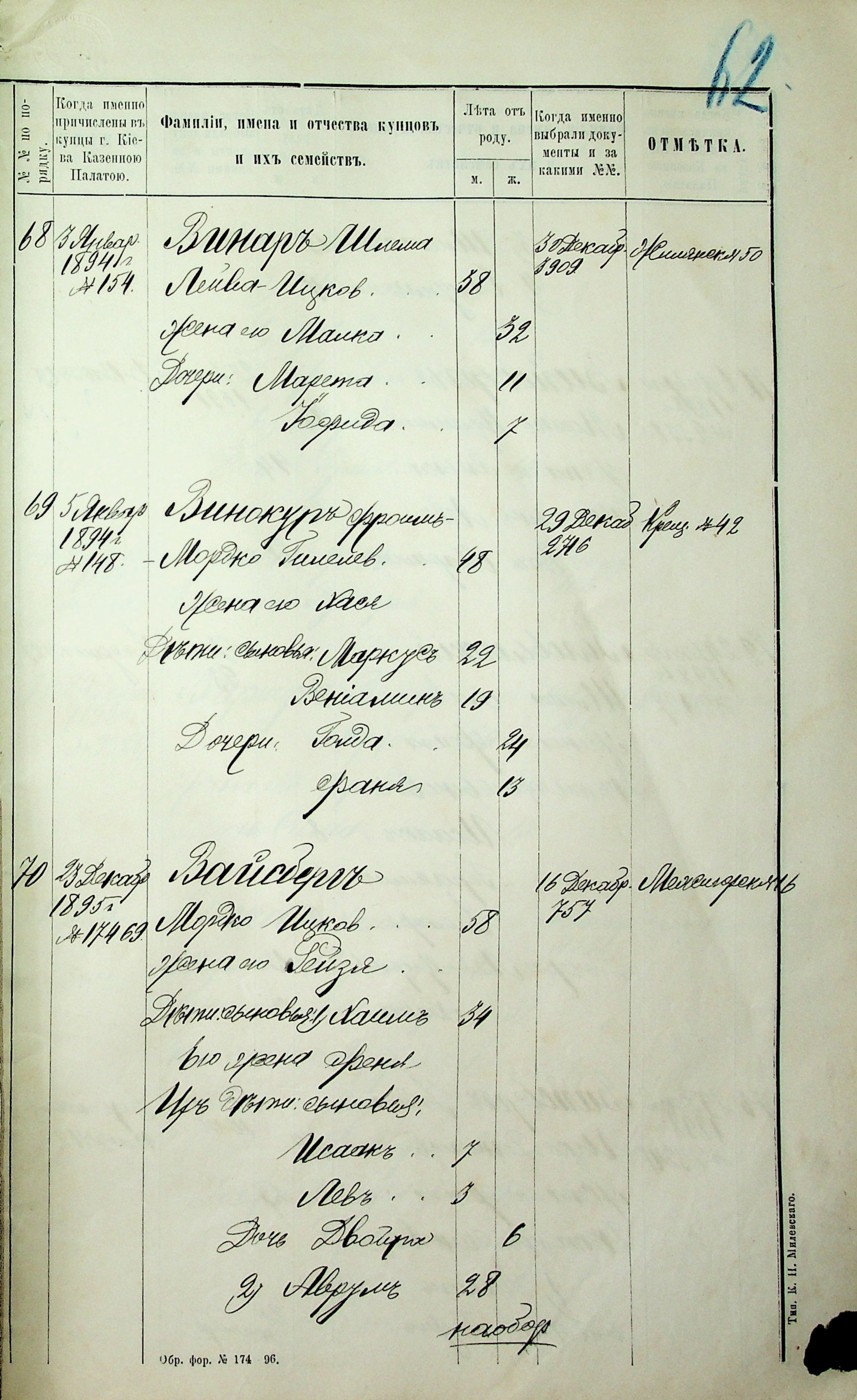 62.
№№ по по-
рядку.
Когда именно
причислены въ
купцы г. Кіе-
ва Казенною
Палатою.
Фамиліи, имена и отчества купцовъ
и ихъ семействъ.
Лѣта отъ
роду.
м.
ж.
Когда именно
выбрали доку-
менты и за
какими №№.
ОТМѢТКА.
68 3 Январ. Винаръ Шлема 30 Декабр.
1894 г. 3909
№ 154. Лейба-Ицков. 38
Жена его Малка 32
Дочери: Марета 11
7
69 5 Январ Винокуръ Фроимъ- 29 Декаб Крещ. № 42
1894 г. 2716
№ 148. -Мордко Гилелев. 48
Жена его Хася
Дѣти: сыновья: Маркусъ 22
Веніаминъ 19
Дочери: Голда 24
Фаня 13
70 23 Декабр Вайсбергъ 16 Декабр.
1895 г. 757
№ 17469. Мордко Ицков. 58
Жена его Рейзя
Дѣти: сыновья: 1) Хаимъ 34
Его жена Феня
Ихъ дѣти: сыновья:
Исаакъ 7
Левъ 3
Дочь Двойра 6
2) Аврумъ 28
наобор
Обр. фор. № 174 96.
Тип. К. Н. Милевскаго.